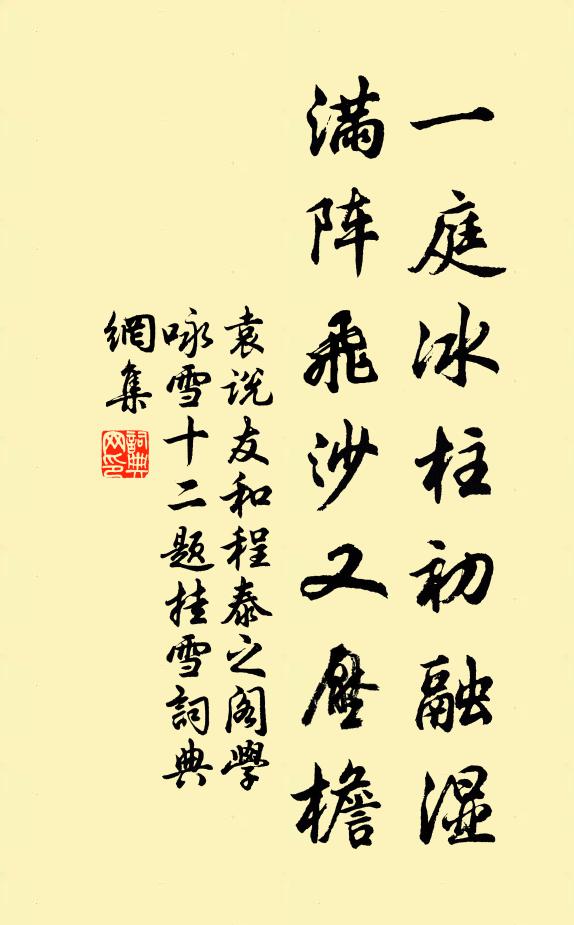 一庭冰柱初融湿
满阵飛沙又壓檐
袁说友和程泰之阁學
咏雪十二题挂雪詞典
網集
詞典
网印